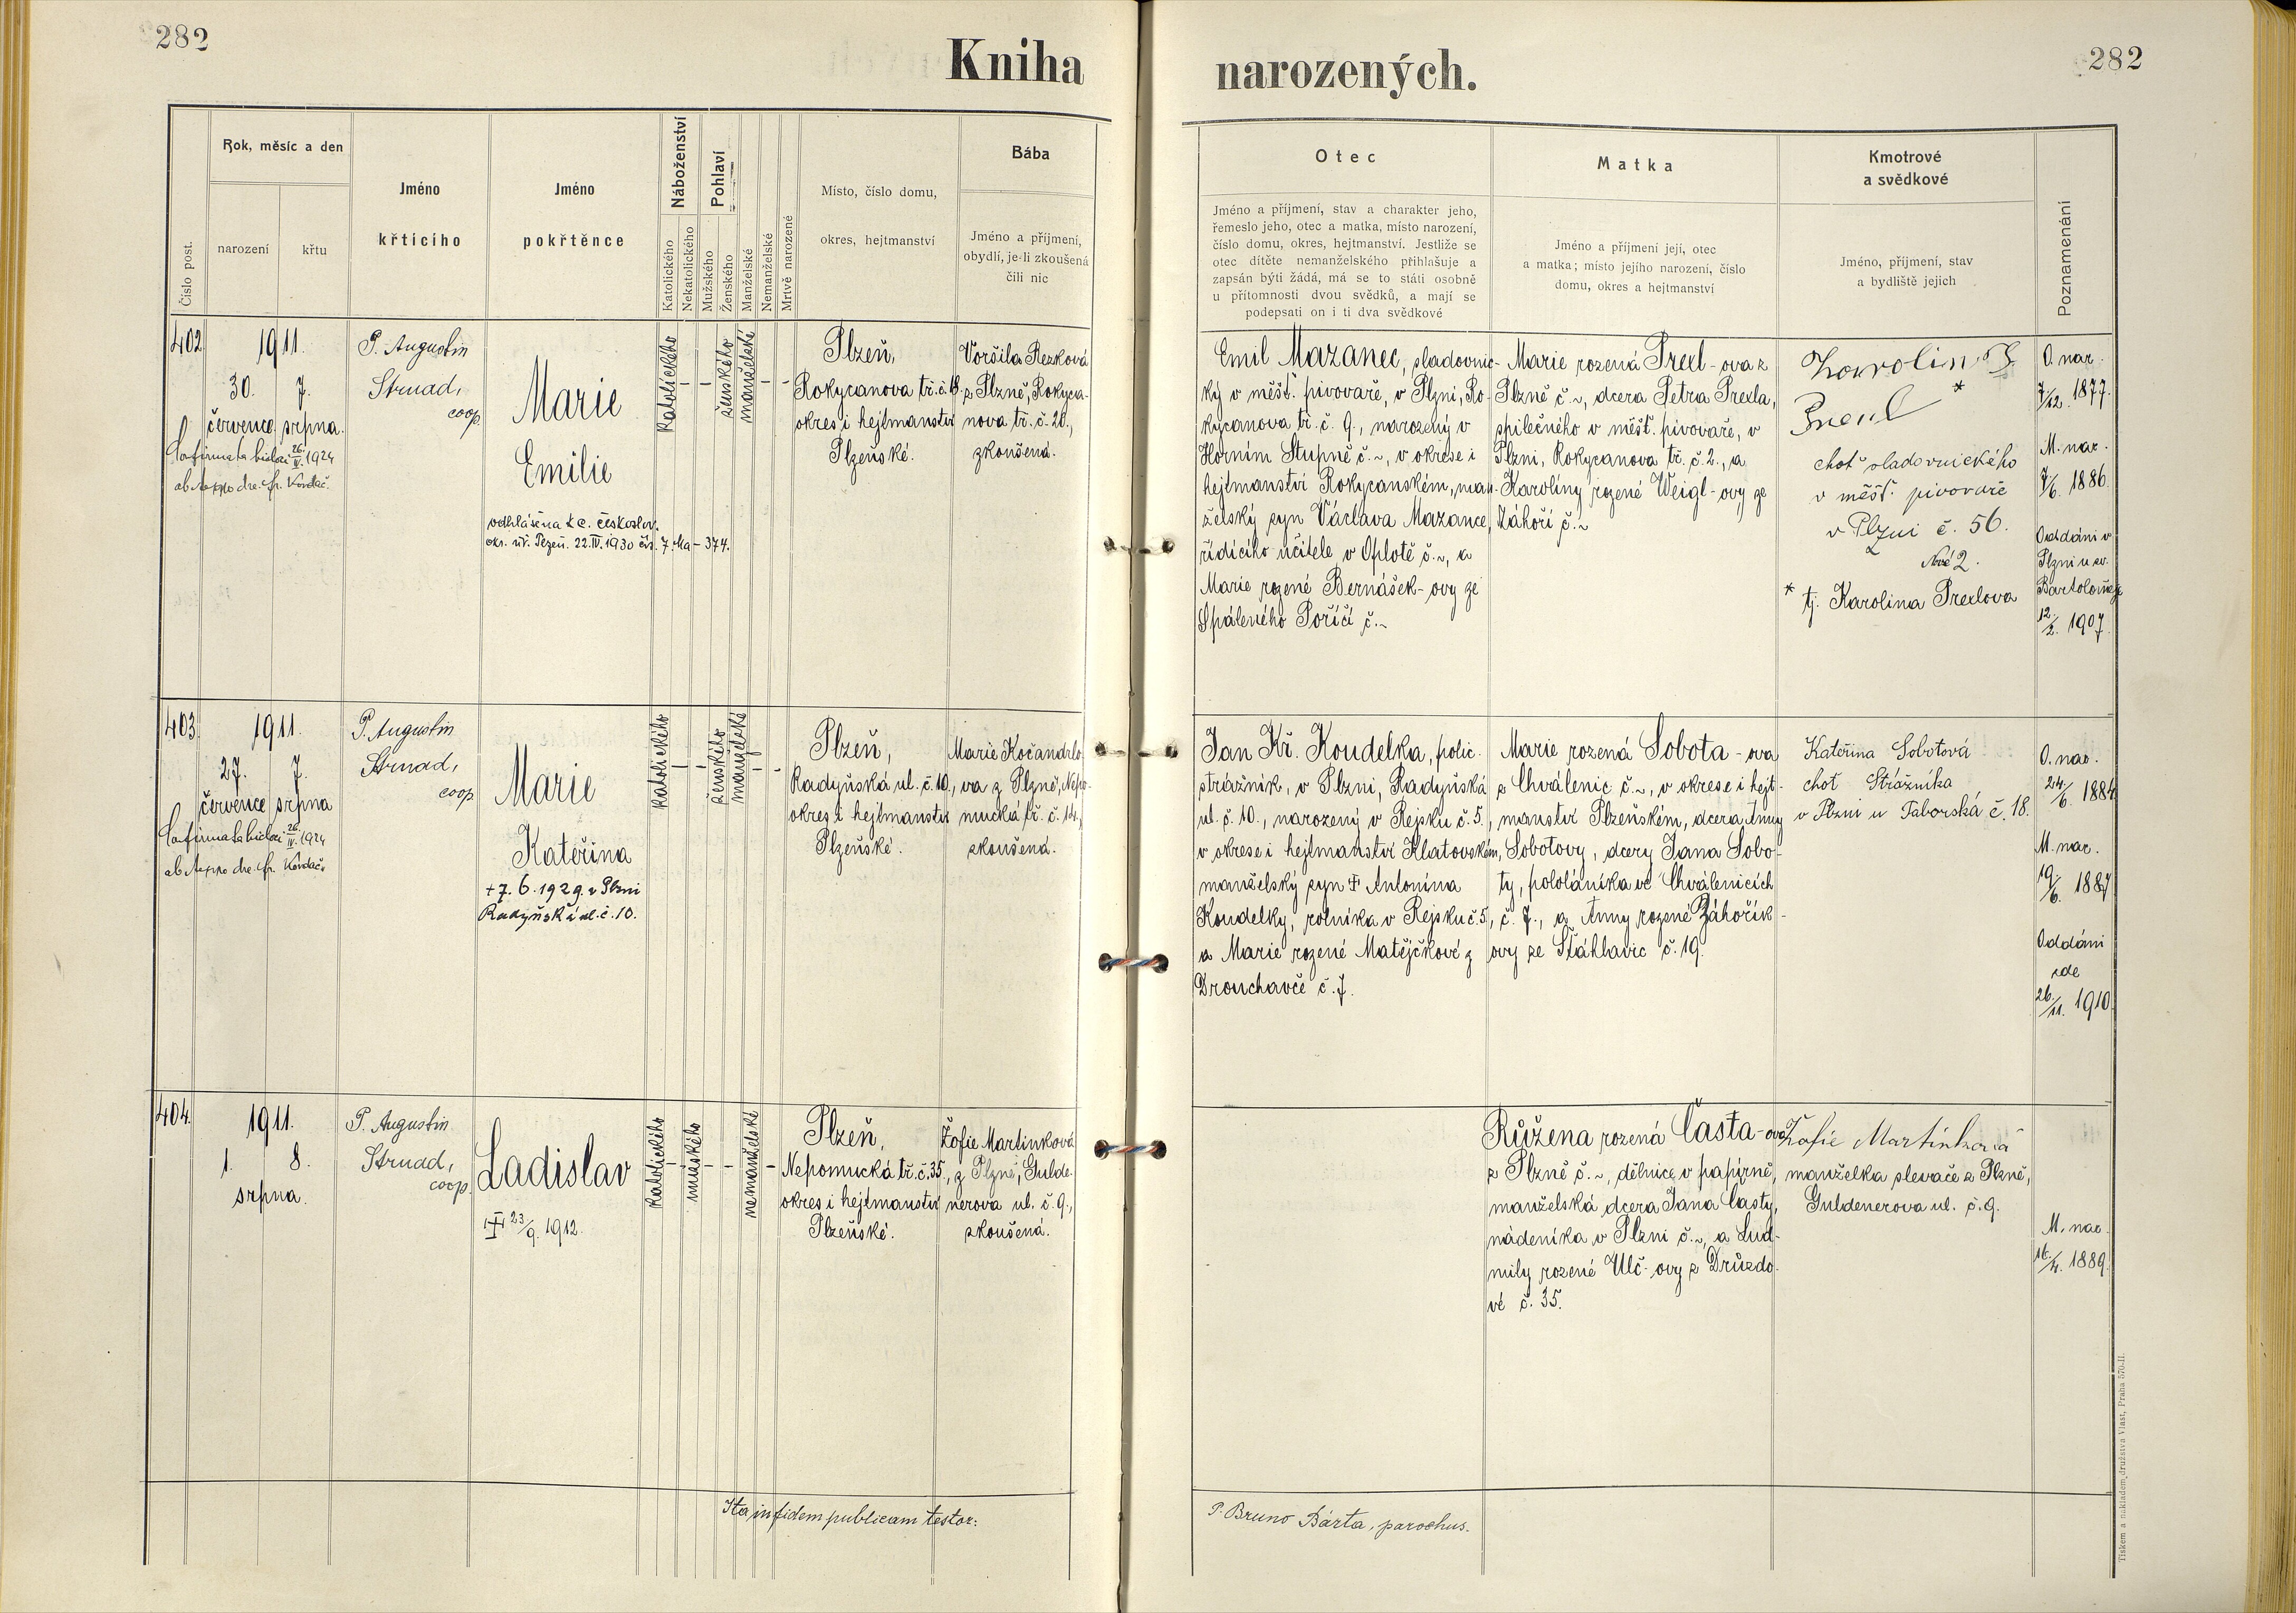 282
Kniha
narozených.
282
Číslo post.
Rok, měsíc a den
narození
křtu
Jméno
křtícího
Jméno
pokřtěnce
Náboženství
Katolického
Nekatolického
Pohlaví
Mužského
Ženského
Manželské
Nemanželské
Mrtvě narozené
Místo, číslo domu,
okres, hejtmanství
Bába
Jméno a příjmení,
obydlí, je-li zkoušená
čili nic
Otec
Jméno a příjmení, stav a charakter jeho,
řemeslo jeho, otec a matka, místo narození,
číslo domu, okres, hejtmanství. Jestliže se
otec dítěte nemanželského přihlašuje a
zapsán býti žádá, má se to státi osobně
u přítomnosti dvou svědků, a mají se
podepsati on i ti dva svědkové
Matka
Jméno a příjmení její, otec
a matka; místo jejího narození, číslo
domu, okres a hejtmanství
Kmotrové
a svědkové
Jméno, příjmení, stav
a bydliště jejich
Poznamenání
402
1911.
30. 7.
července srpna.
26./IV. 1924
P. Augustin
Strnad,
coop.
Marie
Emilie
odhlášena z c. českoslov.
okr. úř. Plzeň. 22.IV.1930 čís. 7. Ma-374.
katolického
-
-
ženského
manželské
-
-
Plzeň,
Rokycanova tř. č. 9.
okres i hejtmanství
Plzeňské.
Voršila Rezková
z Plzně, Rokyca-
nova tř. č. 20.,
zkoušená.
Emil Mazanec, sladovnic-
ký v měšť. pivovaře, v Plzni, Ro-
kycanova tř. č. 9., narozený v
Horním Stupně č. ~, v okrese i
hejtmanství Rokycanském, man-
želský syn Václava Mazance,
řídícího učitele v Oplotě č. ~, a
Marie rozené Bernášek-ovy ze
Spáleného Poříčí č. ~
Marie rozená Prexl-ova z
Plzně č. ~, dcera Petra Prexla,
spilečného v měšť. pivovaře, v
Plzni, Rokycanova tř. č. 2., a
Karolíny rozené Weigl-ovy ze
Záhoří č. ~
*
choť sladovnického
v měšť. pivovaře
v Plzni č. 56.
Nové 2.
* tj. Karolina Prexlova
O. nar.
7/12. 1877.
M. nar.
7/6. 1886.
Oddáni v
Plzni u sv.
Bartoloměje
12./2. 1907.
403.
1911.
27. 7.
července srpna
26./IV. 1924
P. Augustin
Strnad,
coop.
Marie
Kateřina
+ 7. 6. 1929. v Plzni
Radyňská ul. č. 10.
katolického
-
-
ženského
manželské
-
-
Plzeň,
Radyňská ul. č. 10.,
okres i hejtmanství
Plzeňské.
Marie Kočandrlo-
va z Plzně, Nepo-
mucká tř. č. 14.,
zkoušená.
Jan Kř. Koudelka, polic.
strážník, v Plzni, Radyňská
ul. č. 10., narozený v Rejsku č. 5.,
v okrese i hejtmanství Klatovském,
manželský syn ☩ Antonína
Koudelky, rolníka v Rejsku č. 5.,
a Marie rozené Matějčkové z
Drouchavče č. 7.
Marie rozená Sobota-ova
z Chválenic č. ~, v okrese i hejt-
manství Plzeňském, dcera Anny
Sobotovy, dcery Jana Sobo-
ty, pololáníka ve Chválenicích
č. 7., a Anny rozené Záhořík-
ovy ze Šťáhlavic č. 19.
Kateřina Sobotová
choť Strážníka
v Plzni u Táborská č. 18.
O. nar.
24./6. 1884
M. nar.
19./6. 1887
Oddáni
zde
26./11. 1910.
404.
1911.
1. 8.
srpna.
P. Augustin
Strnad,
coop.
Ladislav
23/9. 1912.
katolického
-
mužského
-
-
nemanželské
-
Plzeň,
Nepomucká tř. č. 35.,
okres i hejtmanství
Plzeňské.
Žofie Martinková
z Plzně, Gulde-
nerova ul. č. 9.,
zkoušená.
Růžena rozená Časta-ova
z Plzně č. ~, dělnice v papírně,
manželská dcera Jana Časty,
nádeníka v Plzni č. ~, a Lud-
mily rozené Ulč-ovy z Drůzdo-
vé č. 35.
Žofie Martinková
manželka slevače z Plzně,
Guldenerova ul. č. 9.
M. nar.
16./4. 1889.
Ita in fidem publicam testor:
P. Bruno Bárta, parochus.
Tiskem a nákladem družstva Vlast, Praha 570-II.